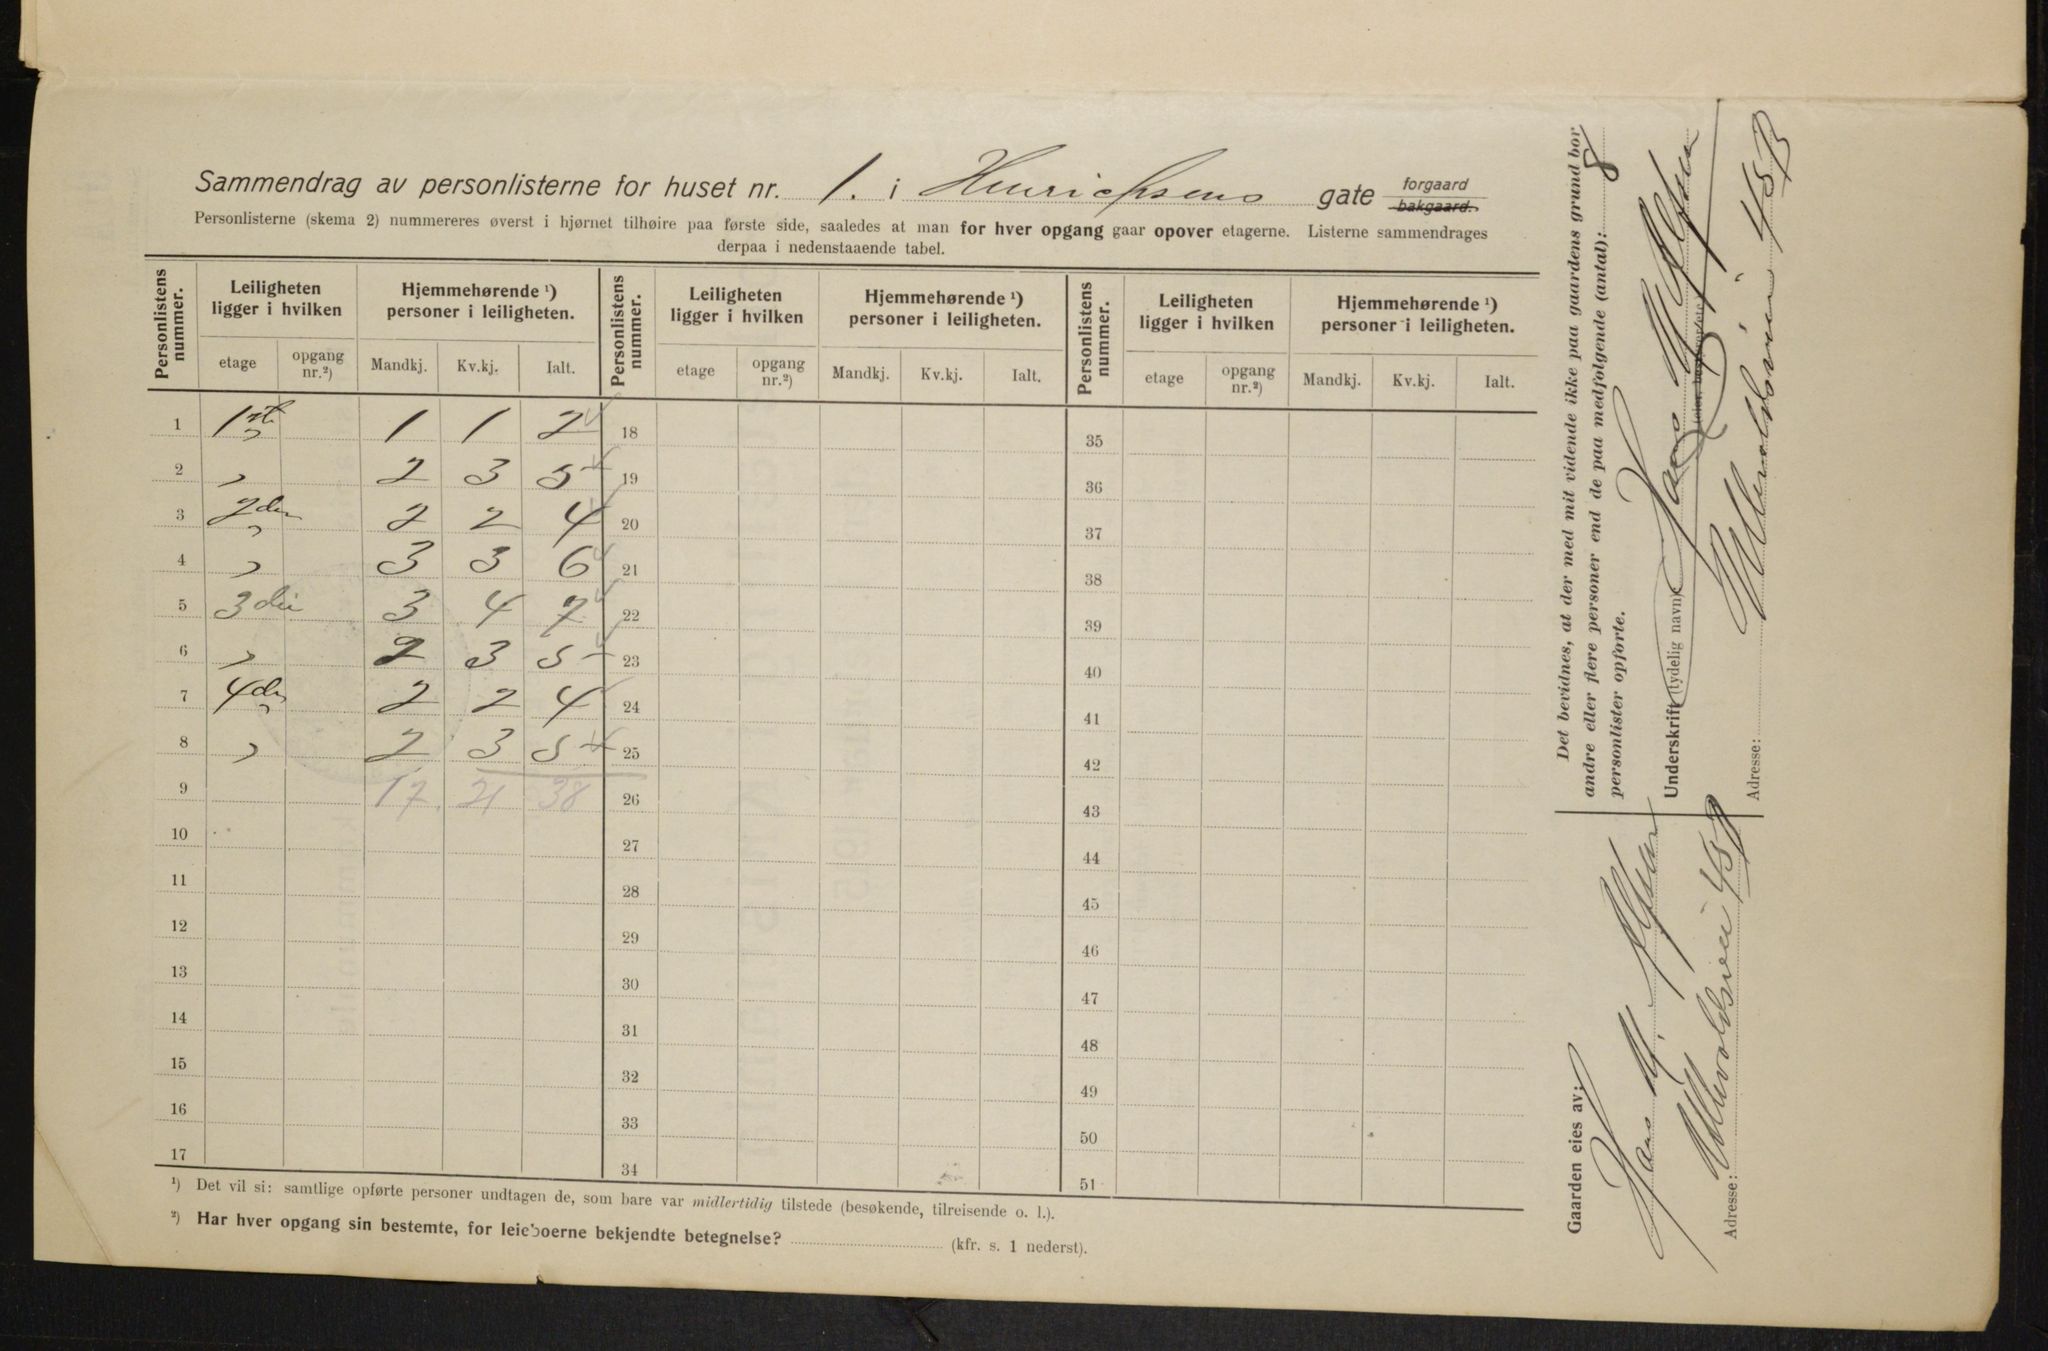 Sammendrag av personlisterne for huset nr. 1. i Henrichsens gate forgaard bakgaard.
Personlisterne (skema 2) nummereres øverst i hjørnet tilhøire paa første side, saaledes at man for hver opgang gaar opover etagerne. Listerne sammendrages
derpaa i nedenstaaende tabel.
Personlistens nummer. Leiligheten ligger i hvilken Hjemmehørende ¹) personer i leiligheten. Personlistens nummer. Leiligheten ligger i hvilken Hjemmehørende ¹) personer i leiligheten. Personlistens nummer. Leiligheten ligger i hvilken Hjemmehørende ¹) personer i leiligheten.
etage opgang nr.²) Mandkj. Kv.kj. Ialt. etage opgang nr.²) Mandkj. Kv.kj. Ialt. etage opgang nr.²) Mandkj. Kv.kj. Ialt.
1 1ste 1 1 2 18 35
2 " 2 3 5 19 36
3 2den 2 2 4 20 37
4 " 3 3 6 21 38
5 3die 3 4 7 22 39
6 " 2 3 5 23 40
7 4de 2 2 4 24 41
8 " 2 3 5 25 42
9 17 21 38 26 43
10 27 44
11 28 45
12 29 46
13 30 47
14 31 48
15 32 49
16 33 50
17 34 51
¹) Det vil si: samtlige opførte personer undtagen de, som bare var midlertidig tilstede (besøkende, tilreisende o. l.).
²) Har hver opgang sin bestemte, for leieboerne bekjendte betegnelse? (kfr. s. 1 nederst).
Det bevidnes, at der med mit vidende ikke paa gaardens grund bor
andre eller flere personer end de paa medfølgende (antal): 8
personlister opførte.
Underskrift (tydelig navn): Hans
Adresse: Ullevoldsveien 45B
Gaarden eies av:
Hans
Adresse: Ullevoldsveien 45B